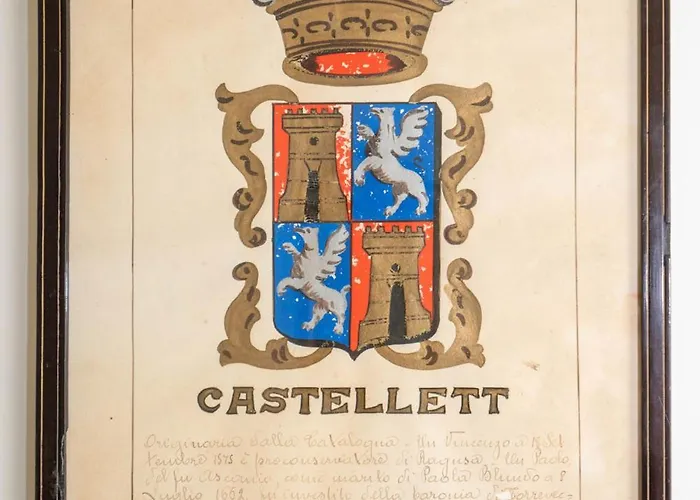 CASTELLETT
Originaria dalla Catalogna - Un Vincenzo a 18 Set
tembre 1575 è proconservatore di Ragusa - Un Paolo
del fu Ascanio, come marito di Paola Blundo a 8
Luglio 1662, investito della baronia di